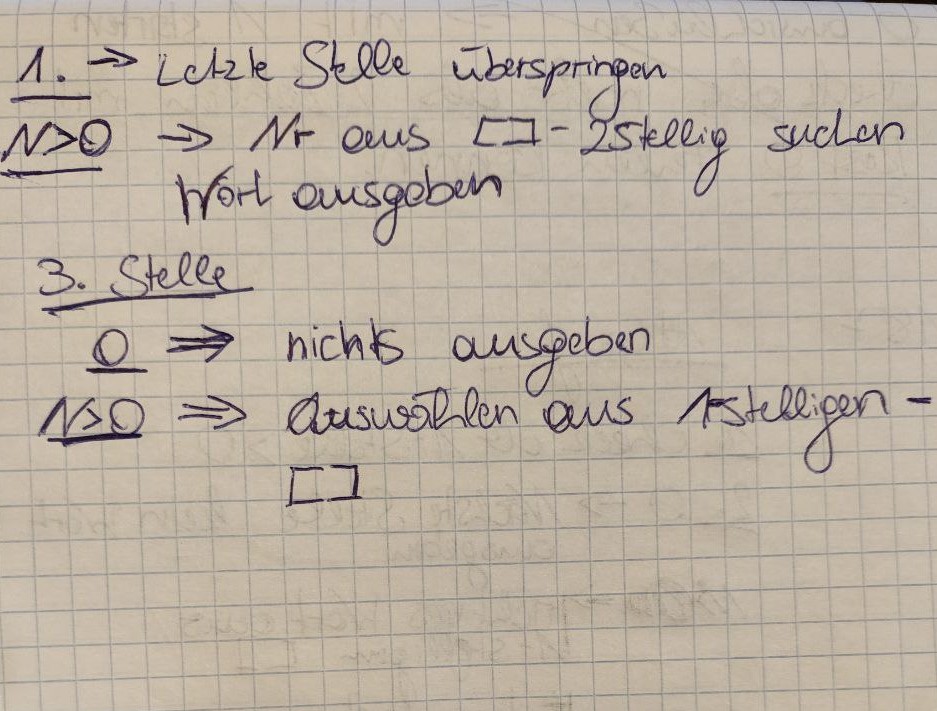 1. → Letzte Stelle überspringen
N>0 → Nr aus [] - 2stellig suchen
Wort ausgeben
3. Stelle
0 ⇒ nichts ausgeben
N>0 ⇒ auswählen aus 1-stelligen -
[]